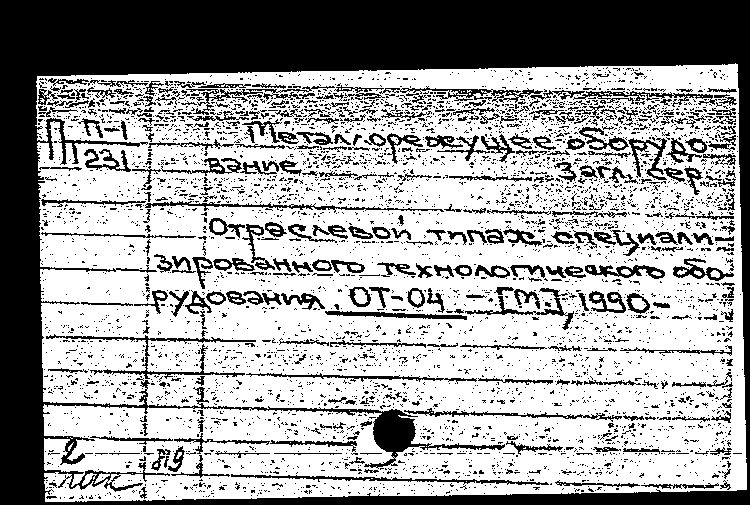 П П-1
231
Металлорежущее оборудо-
вание Загл. сер.
Отраслевой типаж специали-
зированного технологического обо-
рудования. ОТ-04. - [М.], 1990-
2 819